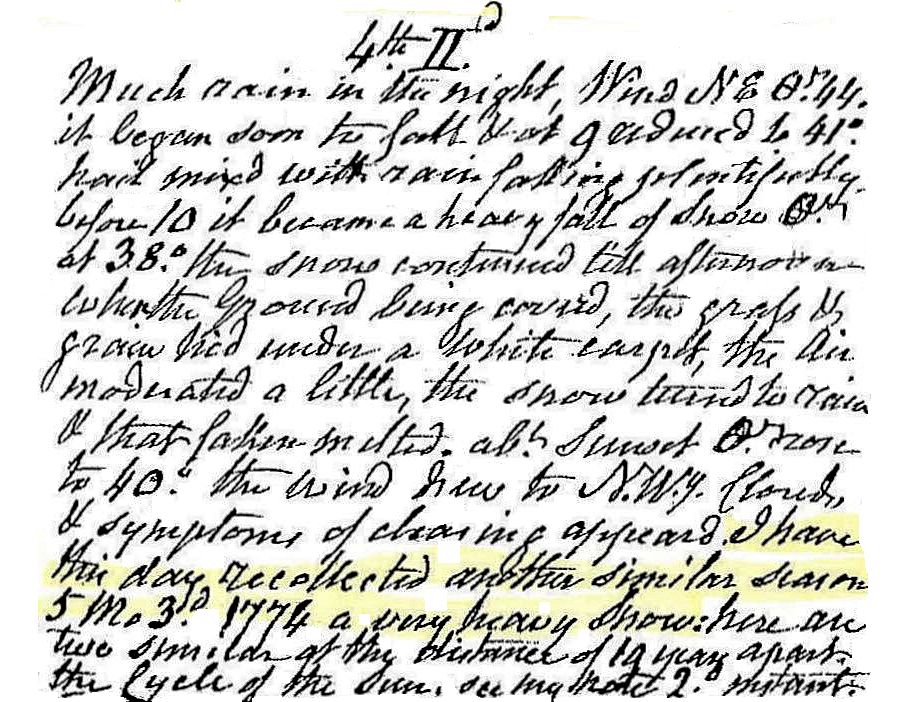 4th II.d
Much rain in the night, Wind NE Or. 44.
it began soon to fall & at 9 reduced to 41°
hail mixd with rain falling plentifully
before 10 it became a heavy fall of Snow Or.
at 38.° the snow continued till afternoon
when the Ground being coverd, the grass &
grain hid under a white carpet, the Air
moderated a little, the snow turnd to rain
& that fallen melted. abt. Sunset Or. rose
to 40.° the wind hew to N.W.y. Clouds
& symptoms of clearing appeard. I have
this day recollected another similar season
5 Mo. 3d. 1774 a very heavy snow: here are
two similar at the distance of 19 years apart.
the Cycle of the Sun. see my note 2.d instant.